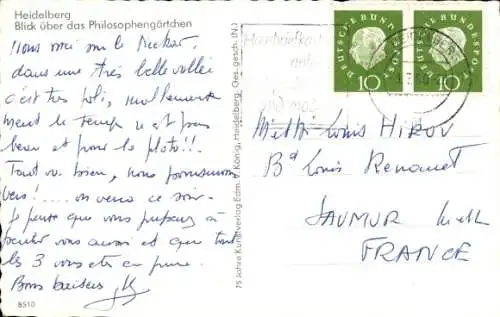 Heidelberg
Blick über das Philosophengärtchen
Nous voici sur le Neckar,
dans une très belle vallée
c'est très joli, malheureuse
ment le temps n'est pas
beau et pour la photo!!!
Tout va bien, nous poursuivons
vers!... on verra ce soir.
Je pense que vous
partir vous aussi et que tout
les 3 vous êtes en forme.
Bons baisers
8510
75 Jahre Kunstverlag Edm. v. König, Heidelberg. Ges. gesch. (N.)
DEUTSCHE BUNDESPOST
10
DEUTSCHE BUNDESPOST
10
Louis HIROU
Bd Louis Renault
SAUMUR
FRANCE